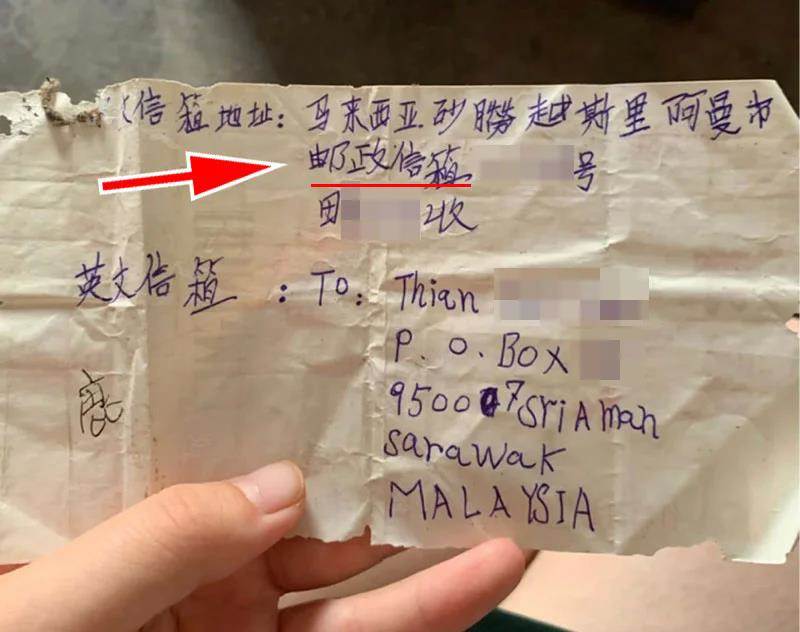 文信箱地址：马来西亚砂朥越斯里阿曼市
邮政信箱 号
田 收
英文信箱：To: Thian
P.O. Box
950007 Sri Aman
sarawak
MALAYSIA
鹿